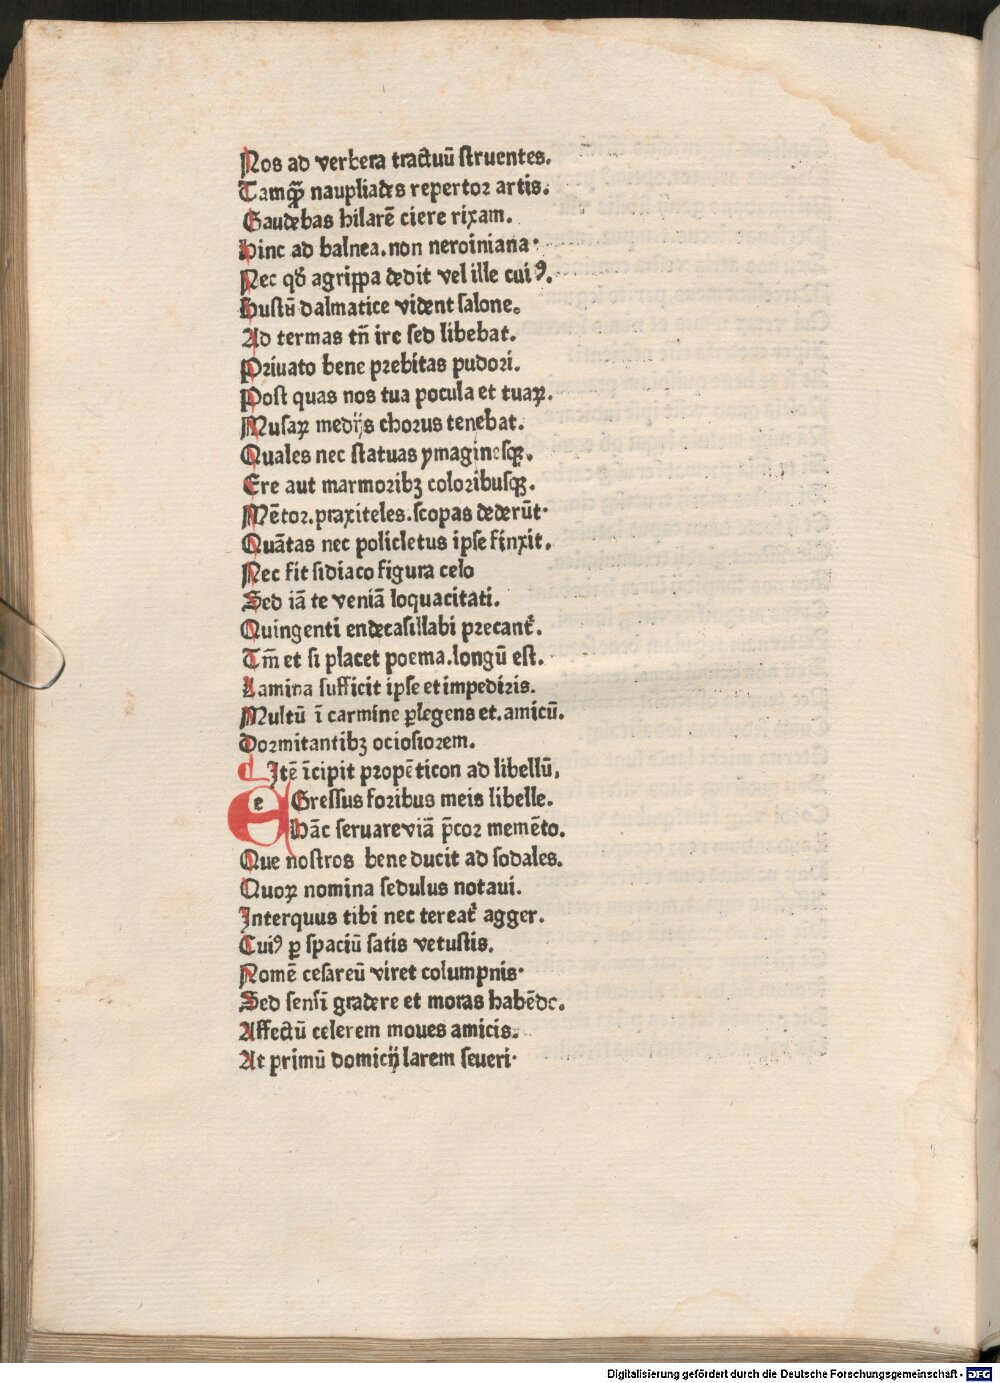 Nos ad verbera tractuū struentes.
Tamqꝫ naupliades repertor artis.
Gaudebas hilarē ciere rixam.
Hinc ad balnea.non neroiniana·
Nec qđ agrippa dedit vel ille cuiꝰ.
Bustū dalmatice vident salone.
Ad termas tñ ire sed libebat.
Priuato bene prebitas pudori.
Post quas nos tua pocula et tuaꝝ.
Musaꝝ medijs chorus tenebat.
Quales nec statuas ymaginesqꝫ.
Ere aut marmoribꝫ coloribusqꝫ.
Mētor.praxiteles.scopas dederūt·
Quātas nec policletus ipse finxit.
Nec fit sidiaco figura celo
Sed iā te veniā loquacitati.
Quingenti endecasillabi precant᷑.
Tm̄ et si placet poema.longū est.
Lamina sufficit ipse et impediris.
Multū ī carmine ꝑlegens et.amicū.
Dormitantibꝫ ociosiorem.
Itē īcipit propēticon ad libellū.
eGressus foribus meis libelle.
Hāc seruare viā p̄cor memēto.
Que nostros bene ducit ad sodales.
Quoꝝ nomina sedulus notaui.
Interquus tibi nec tereat᷑ agger.
Cuiꝰ ꝑ spaciū satis vetustis.
Nomē cesareū viret columpnis·
Sed sensī gradere et moras habēdo.
Affectū celerem moues amicis.
At primū domicij larem seueri·
Digitalisierung gefördert durch die Deutsche Forschungsgemeinschaft - DFG